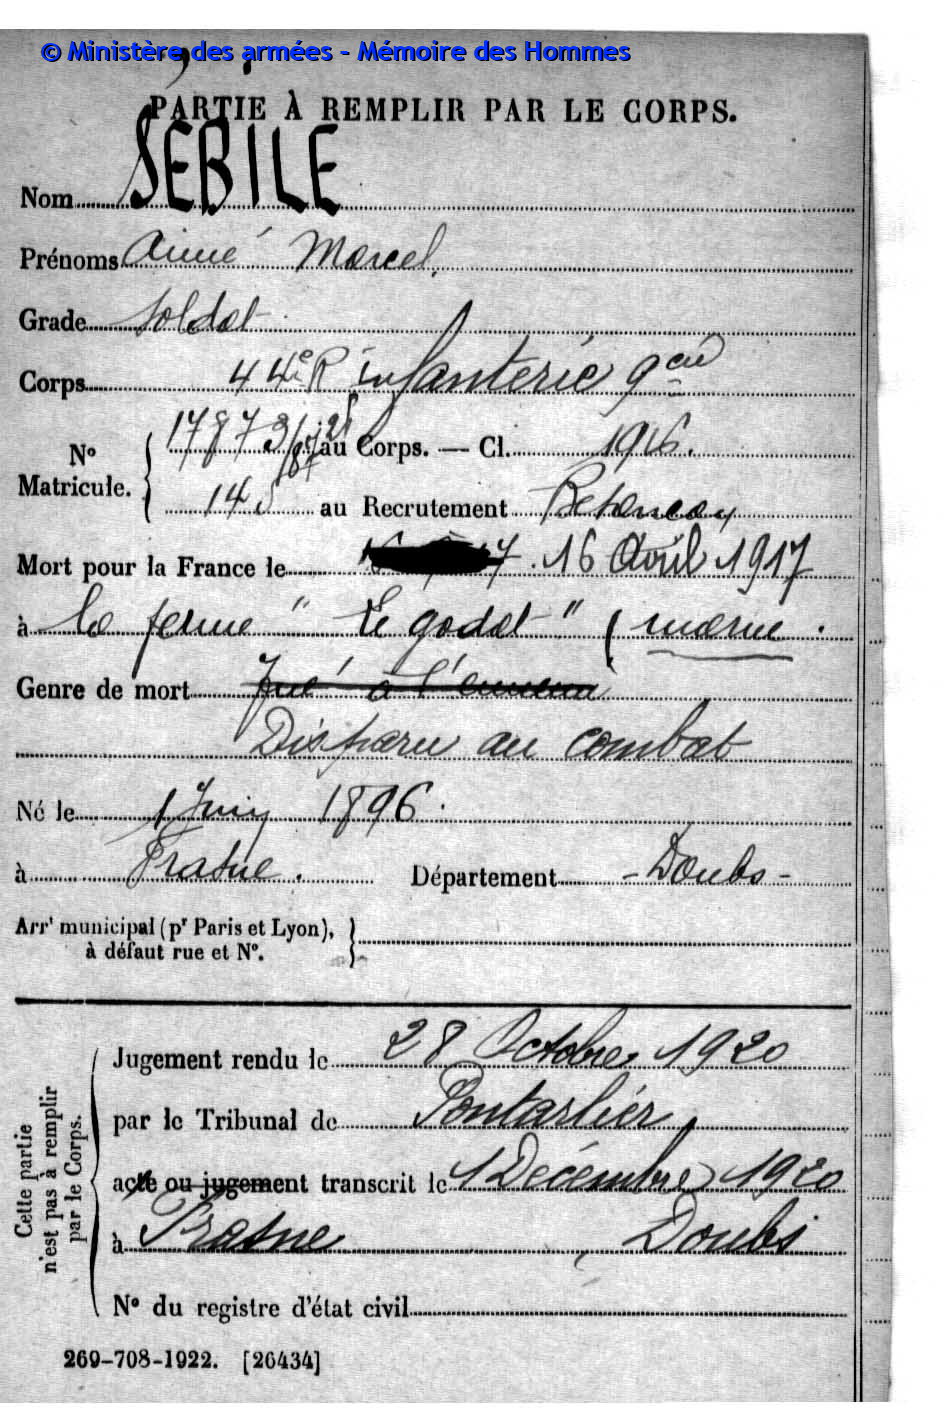 © Ministère des armées - Mémoire des Hommes
PARTIE À REMPLIR PAR LE CORPS.
Nom SEBILE
Prénoms Aimé Marcel
Grade Soldat
Corps 44e R Infanterie 9 cie
17873 au Corps. — Cl. 1916.
N° Matricule.
145 au Recrutement Besançon
Mort pour la France le 16 Avril 1917
à la ferme "Le godat" (marne.
Genre de mort Tué à l'ennemi
Disparu au combat
Né le 1 Juin 1896.
à Frasne. Département - Doubs -
Arrt municipal (pr Paris et Lyon),
à défaut rue et N°.
Cette partie
n'est pas à remplir
par le Corps.
Jugement rendu le 28 Octobre 1920
par le Tribunal de Pontarlier
acte ou jugement transcrit le 1 Décembre 1920
à Frasne, Doubs
N° du registre d'état civil
269-708-1922. [26434]